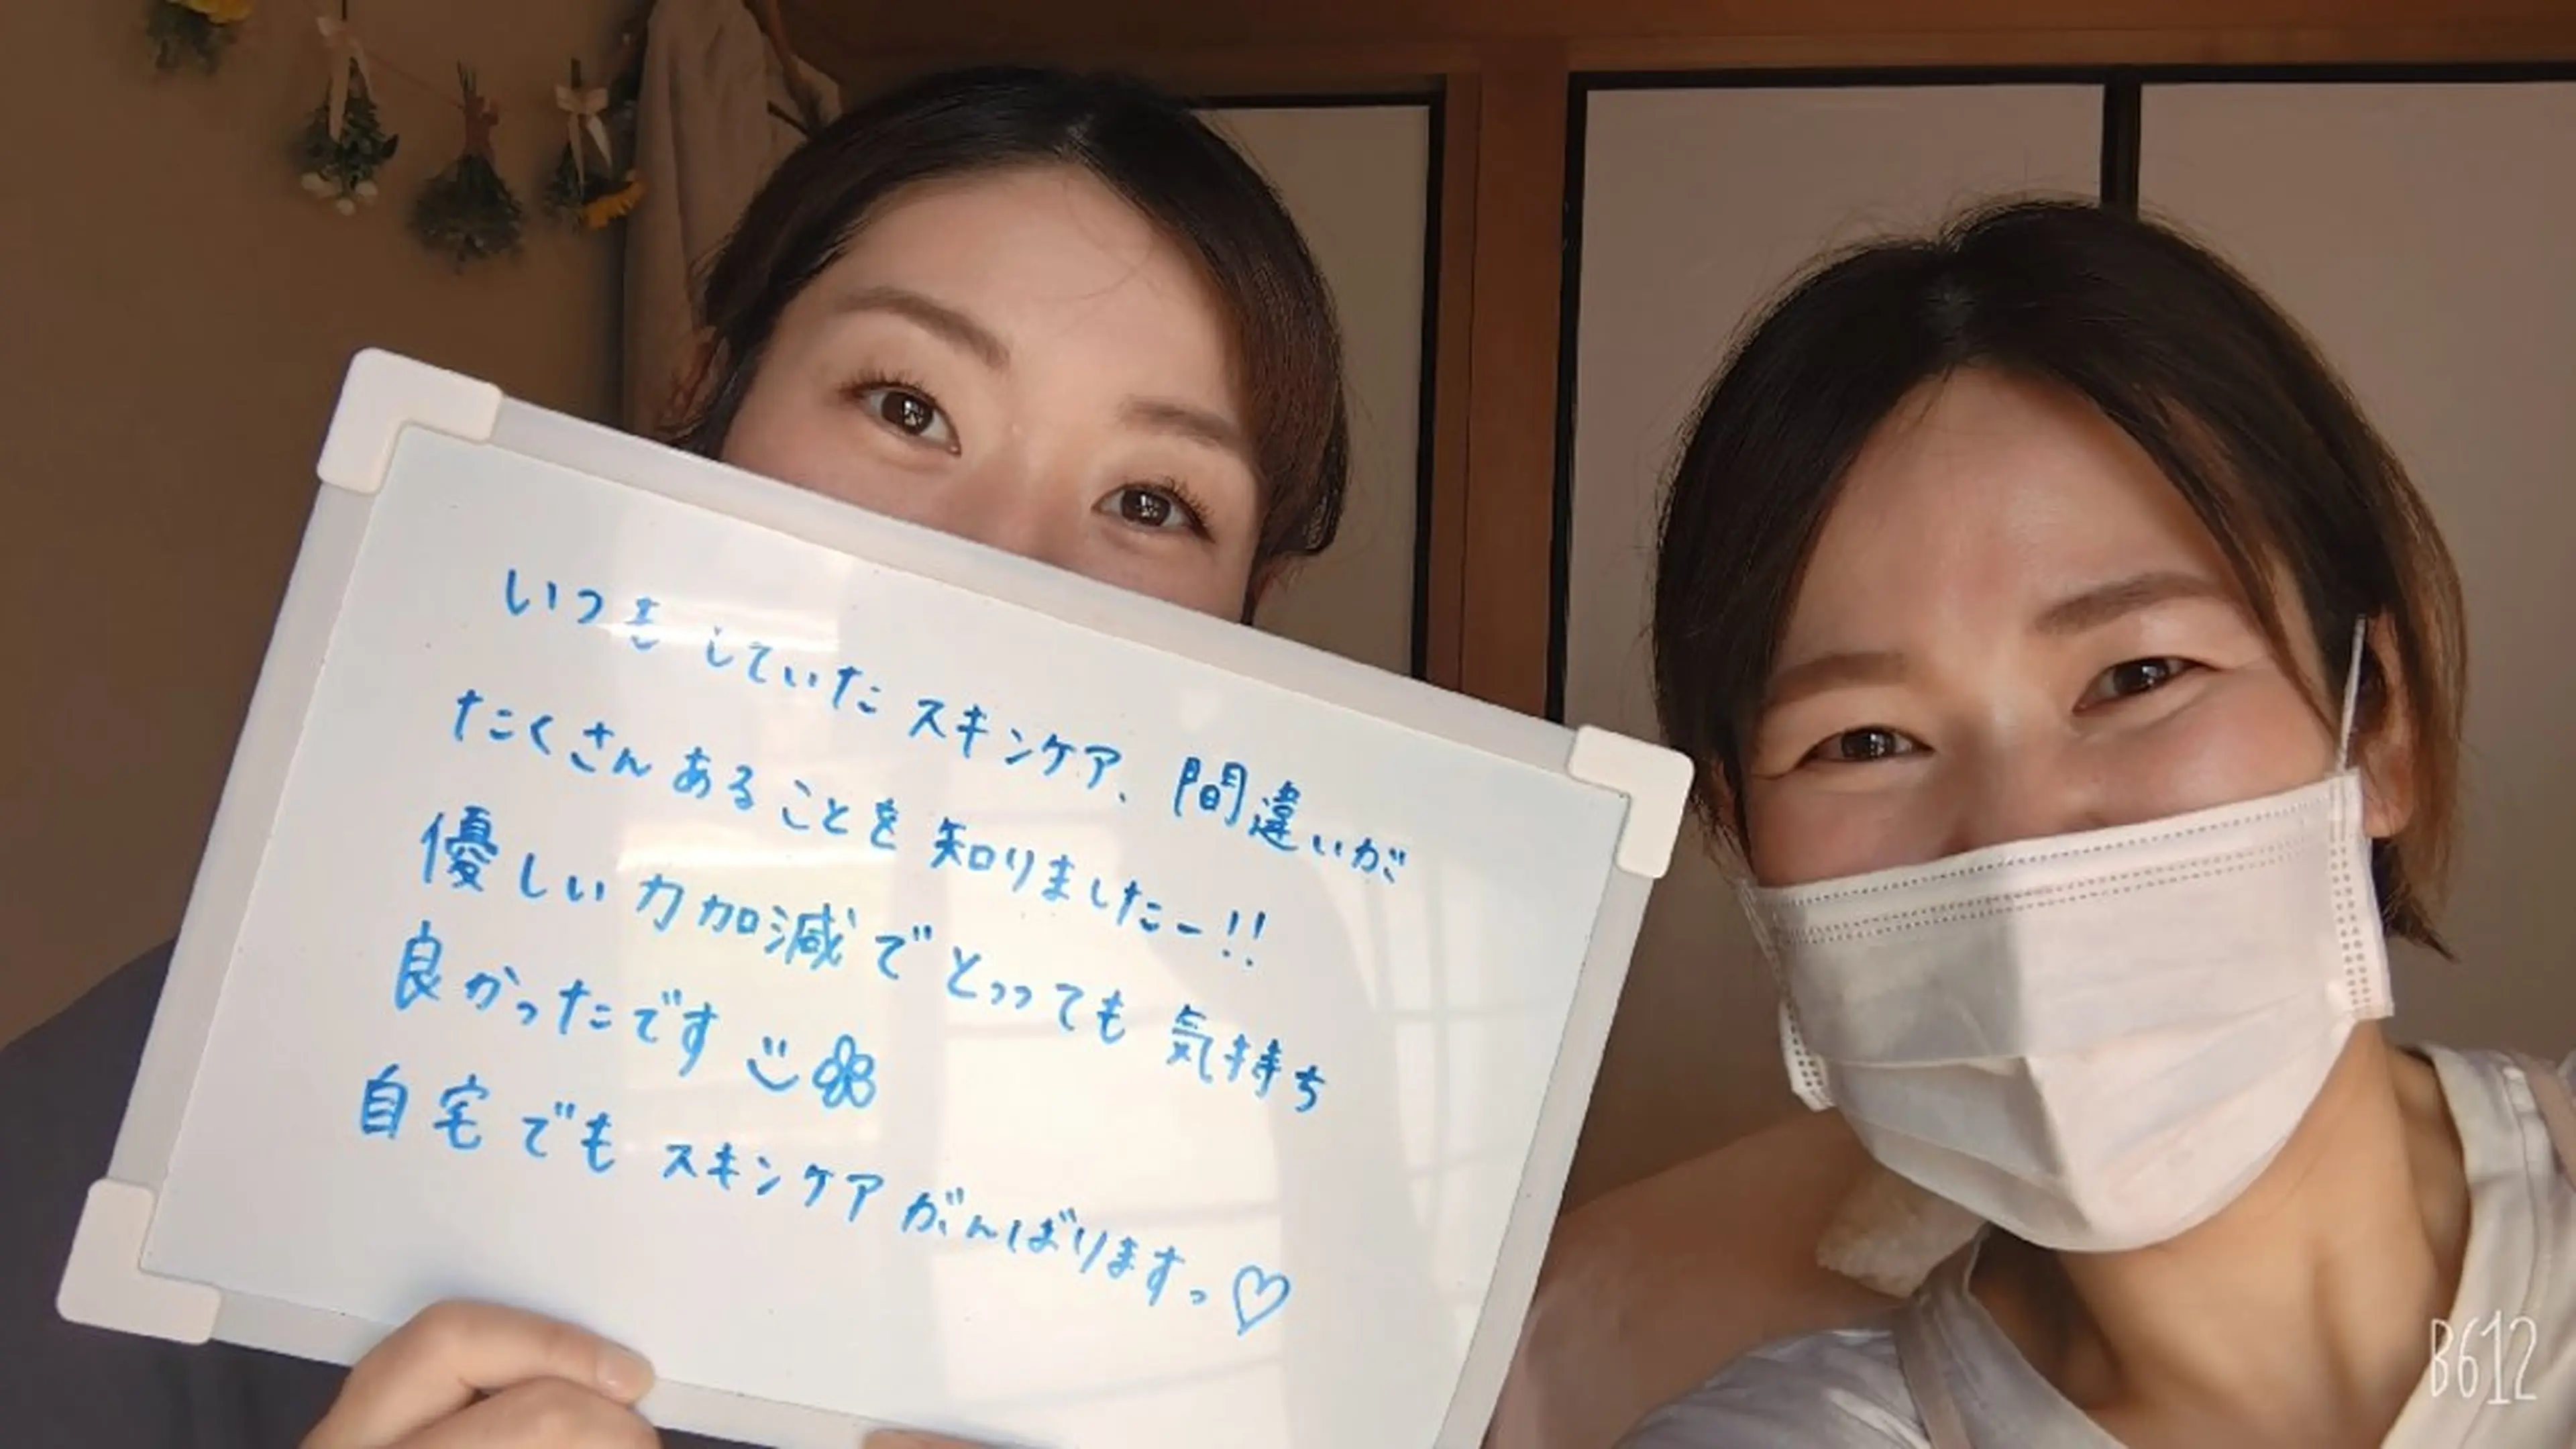 いつもしていたスキンケア、間違いが
たくさんあることを知りましたー!!
優しい力加減でとっっても気持ち
良かったです
自宅でもスキンケアがんばりますっ♡
B612